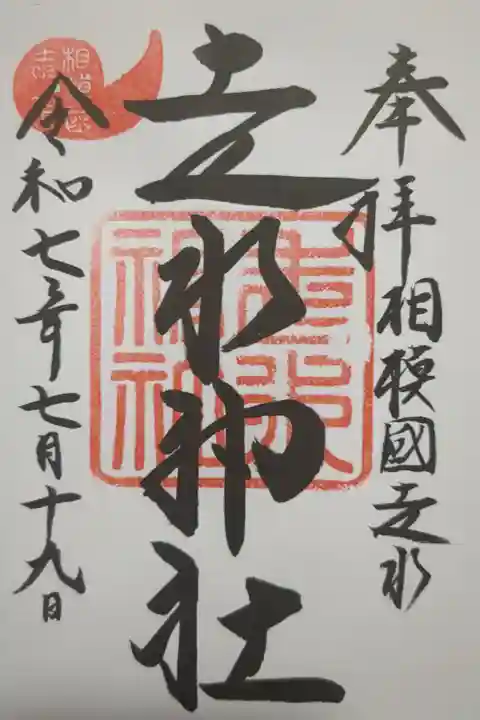 奉拝 相模國走水
走水神社
令和七年七月十九日
走水
神社